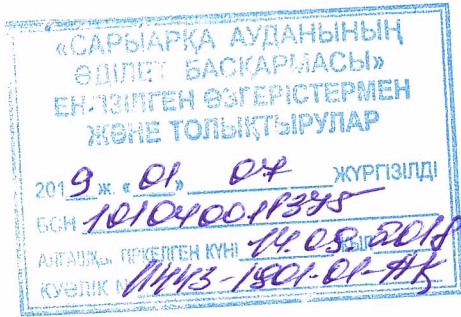 «САРЫАРҚА АУДАНЫНЫҢ
ӘДІЛЕТ БАСҚАРМАСЫ»
ЕНГІЗІЛГЕН ӨЗГЕРІСТЕРМЕН
ЖӘНЕ ТОЛЫҚТЫРУЛАР
2019 ж. «01» 07 ЖҮРГІЗІЛДІ
БСН 101040011375
АЛҒАШҚЫ ТІРКЕЛГЕН КҮНІ 14.05.2018
КУӘЛІК №